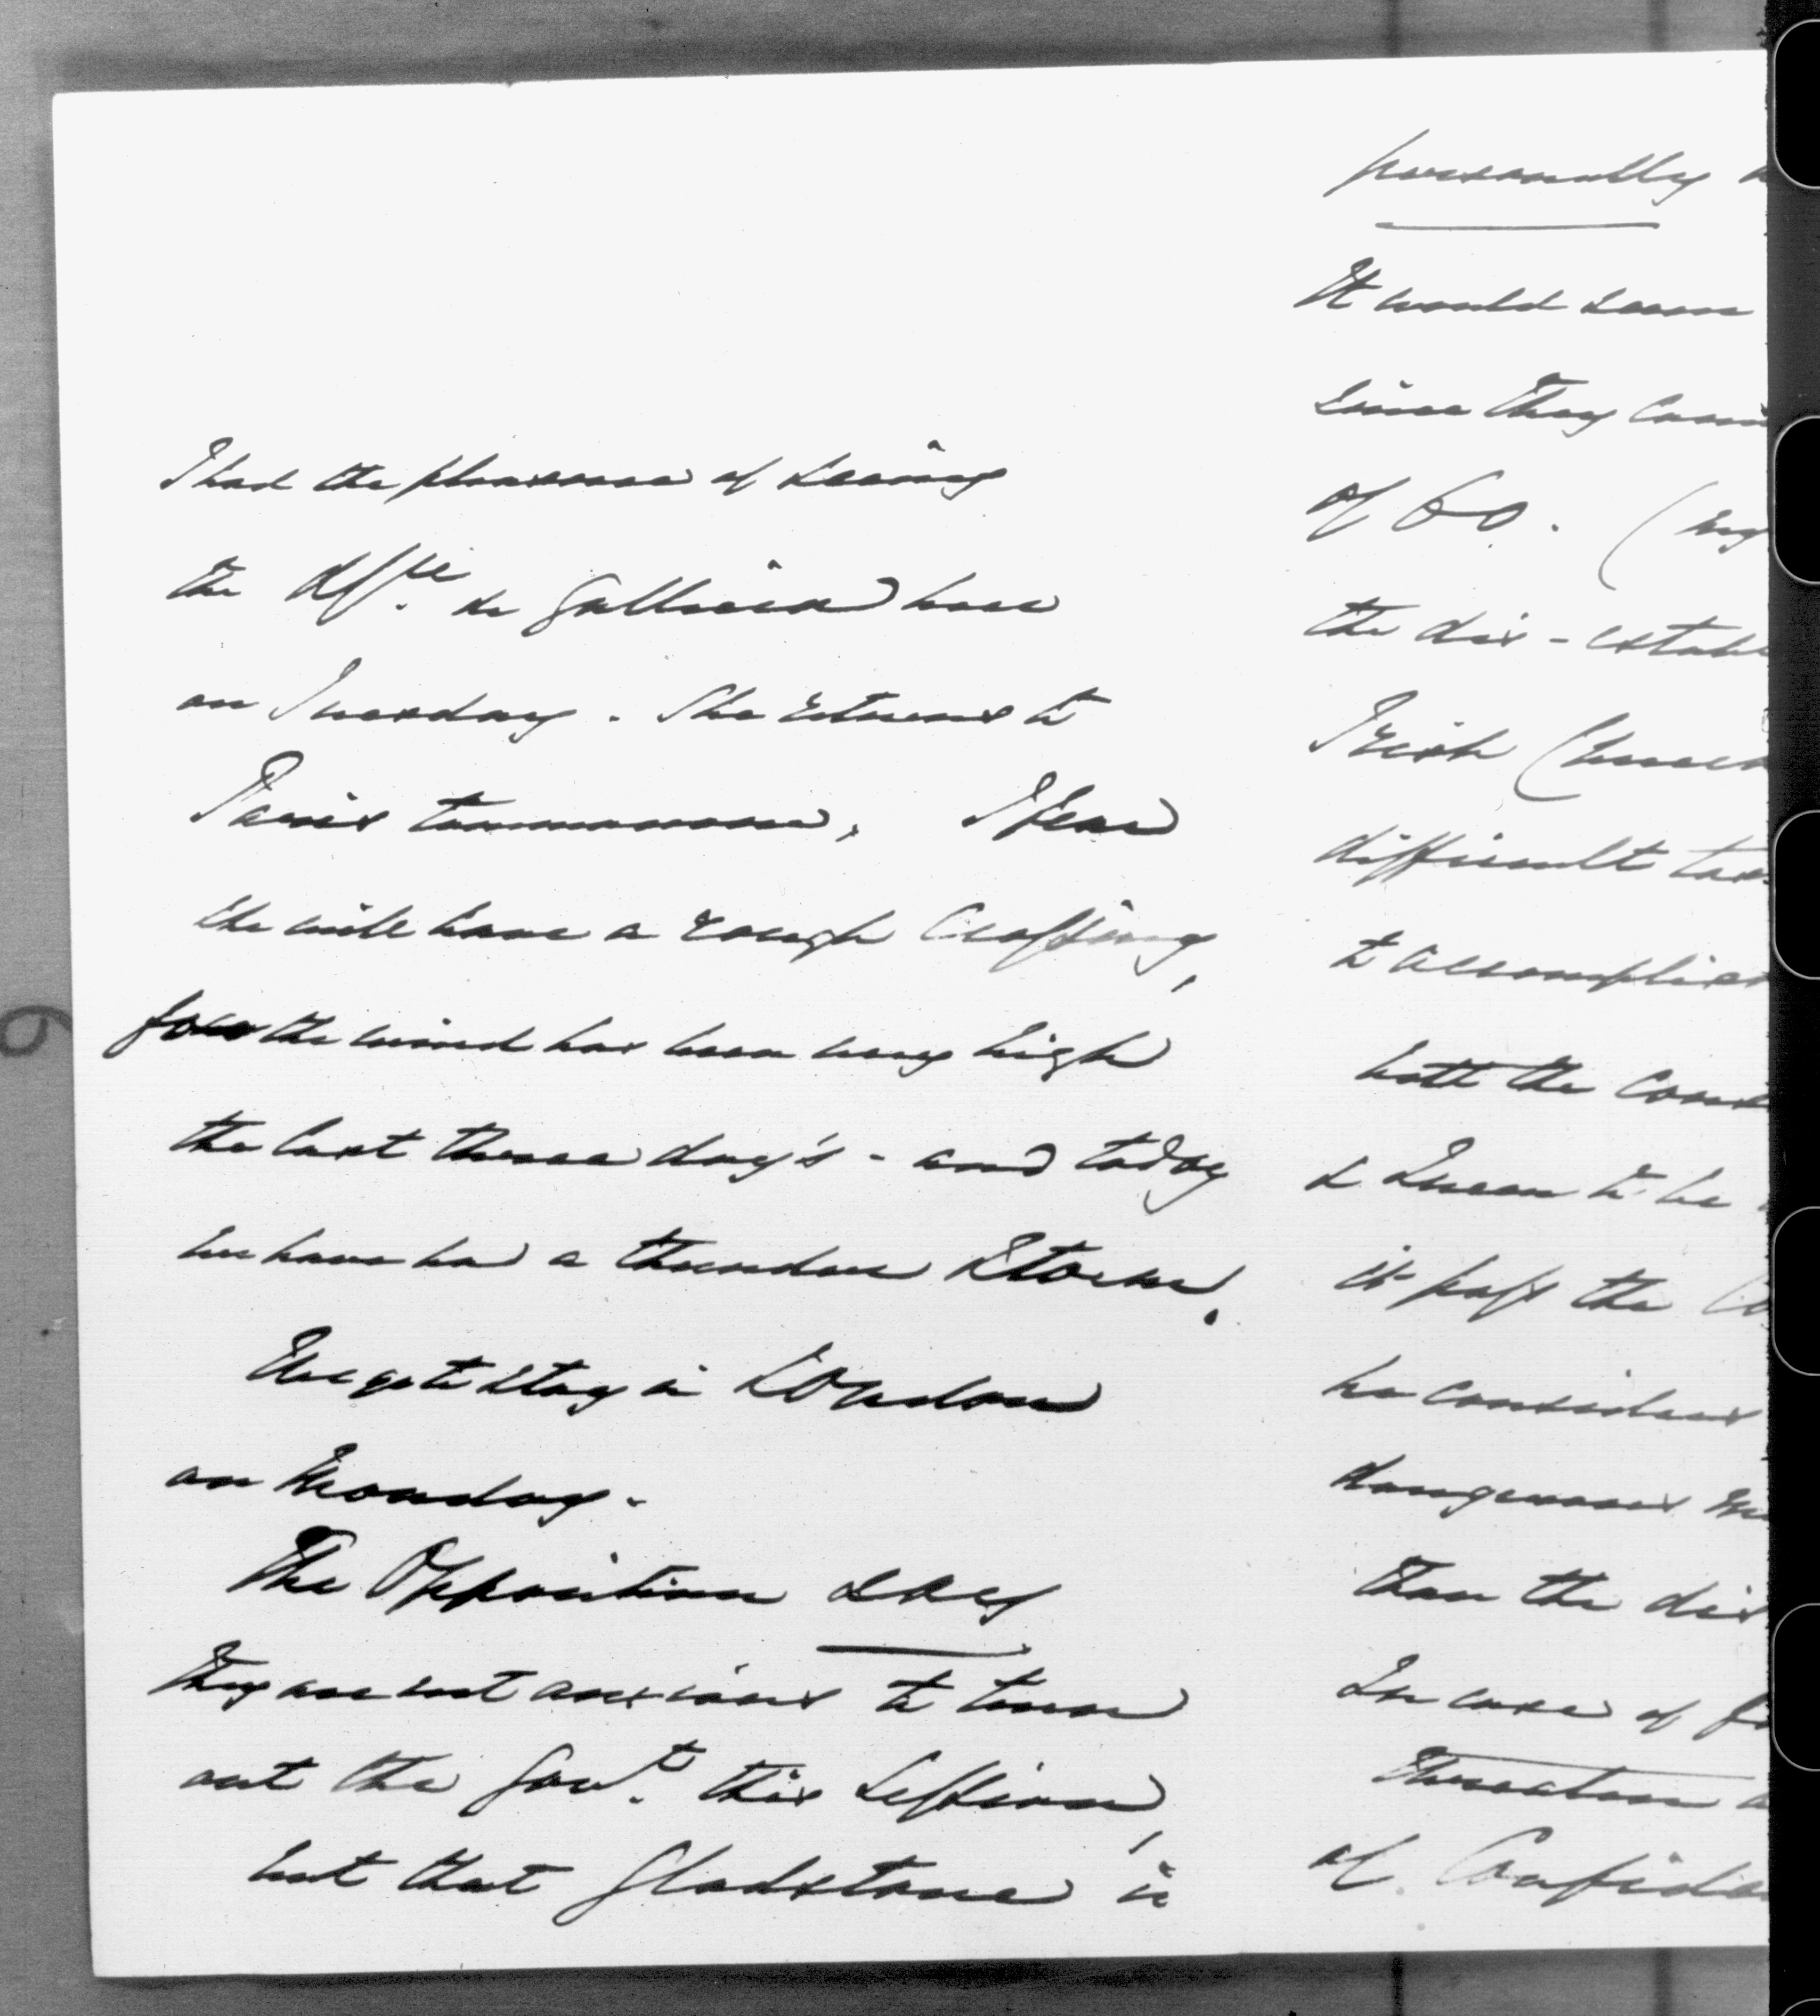 I had the pleasure of seeing
the Dsse. de Galliera here
on Tuesday. She returns to
Paris tommorrow, I fear
she will have a rough Crossing,
for the wind has been very high
the last three day's - and today
we have had a thunder Storm.
We go to stay in London
on Monday.
The Opposition say
they are not anxious to turn
out the Govt. this Session,
but that Gladstone is
personally
It would seem
since they
of 60. (
the dis-estab
Irish Church
difficult tas
to accomplis
both the
to pass the
he considers
dangerous
than the dis
In case of
threaten
of Confide